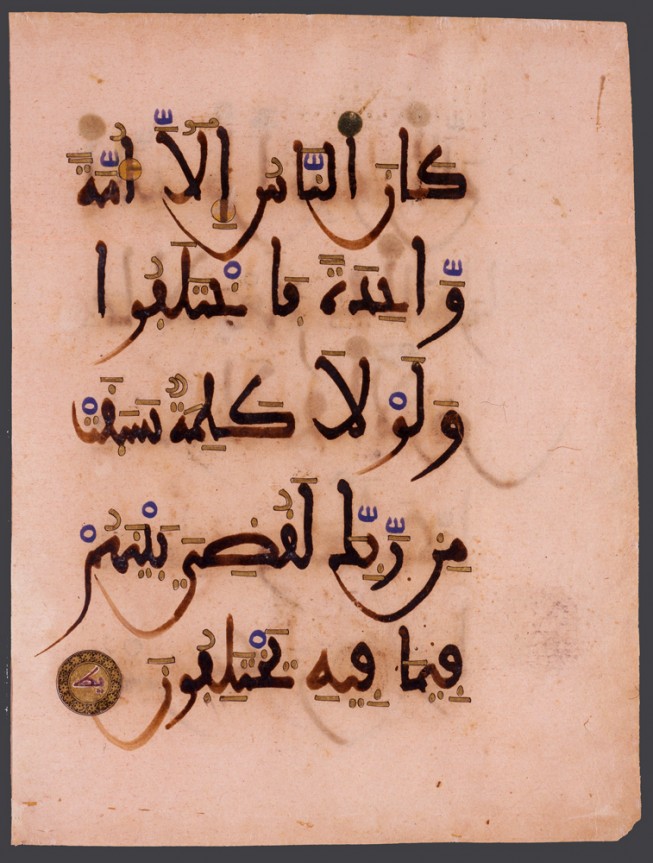 كَانَ النَّاسُ إِلَّا أُمَّةً
وَّاحِدَةً فَاخْتَلَفُوا
وَلَوْلَا كَلِمَةٌ سَبَقَتْ
مِن رَّبِّكَ لَقُضِيَ بَيْنَهُمْ
فِيمَا فِيهِ يَخْتَلِفُونَ